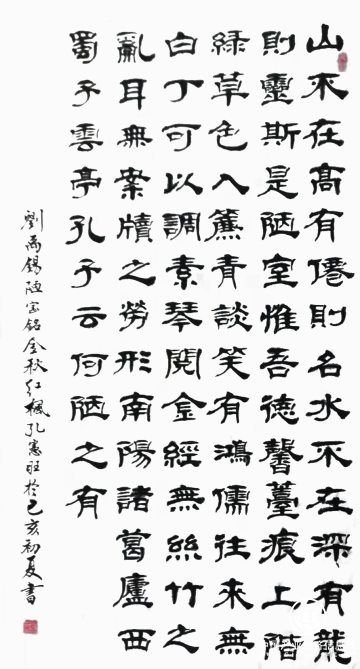 山不在高有僊則名水不在深有龍
則靈斯是陋室惟吾德馨薹痕上階
綠草色入簾青談笑有鴻儒往來無
白丁可以調素琴閱金經無絲竹之
亂耳無案牘之勞形南陽諸葛廬西
蜀子雲亭孔子云何陋之有
劉禹錫陋室銘金秋紅楓孔憲旺於己亥初夏書